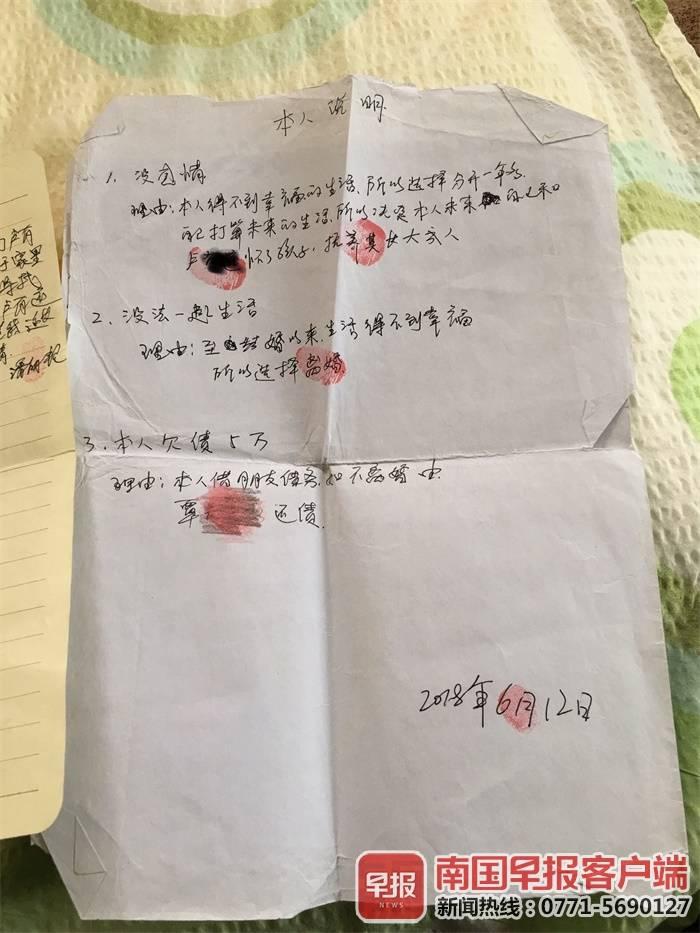 本人说明
1、没感情
理由:本人得不到幸福的生活,所以选择分开一年多
自己打算未来的生活,所以决定本人未来
卢 怀了孩子,抚养其女大成人
2、没法一起生活
理由:至结婚以来,生活得不到幸福
所以选择离婚
3、本人欠债5万
理由:本人借朋友债务,如不离婚由
覃 还债
2018年6月12日
早报
NEWS
南国早报客户端
新闻热线:0771-5690127